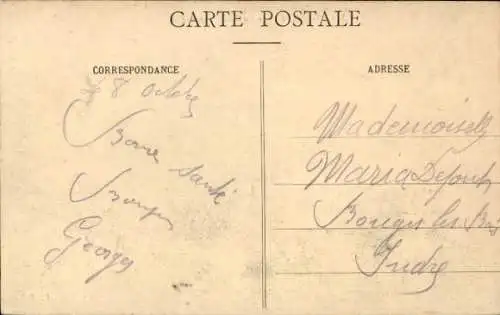 CARTE POSTALE
CORRESPONDANCE
8 octobre
Bonne santé
Georges
ADRESSE
Mademoiselle
Maria
Bouges les
Indre